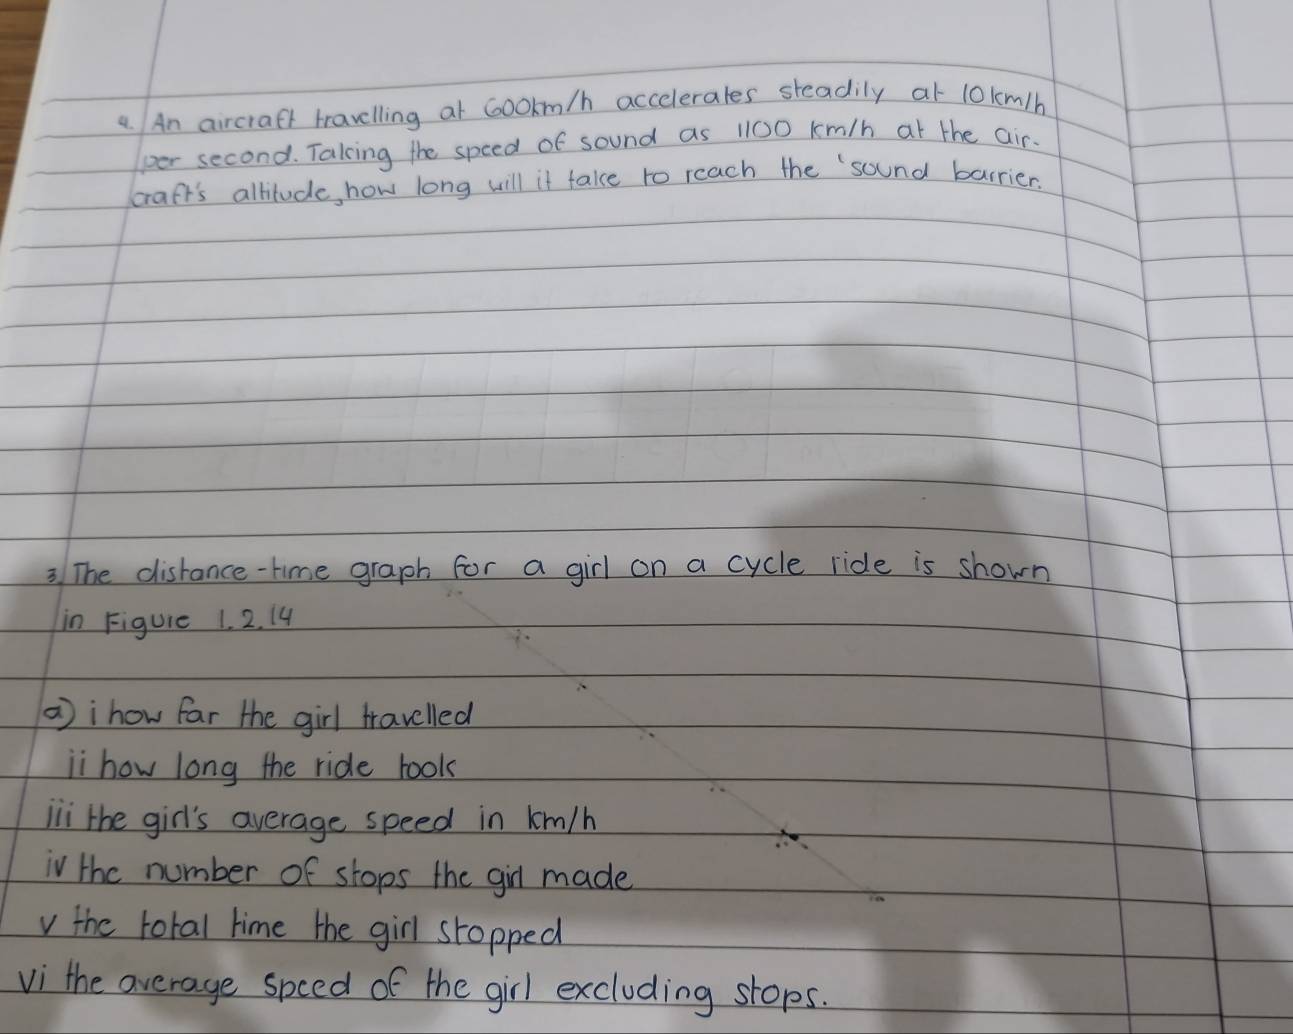 4. An aircraft travelling at 600km/h accelerates steadily at 10km/h
per second. Taking the speed of sound as 1100 km/h at the air-
craft's altitude, how long will it take to reach the 'sound barrier.
3. The distance-time graph for a girl on a cycle ride is shown
in Figure 1.2.14
a) i how far the girl travelled
ii how long the ride took
iii the girl's average speed in km/h
iv the number of stops the girl made
v the total time the girl stopped
vi the average speed of the girl excluding stops.